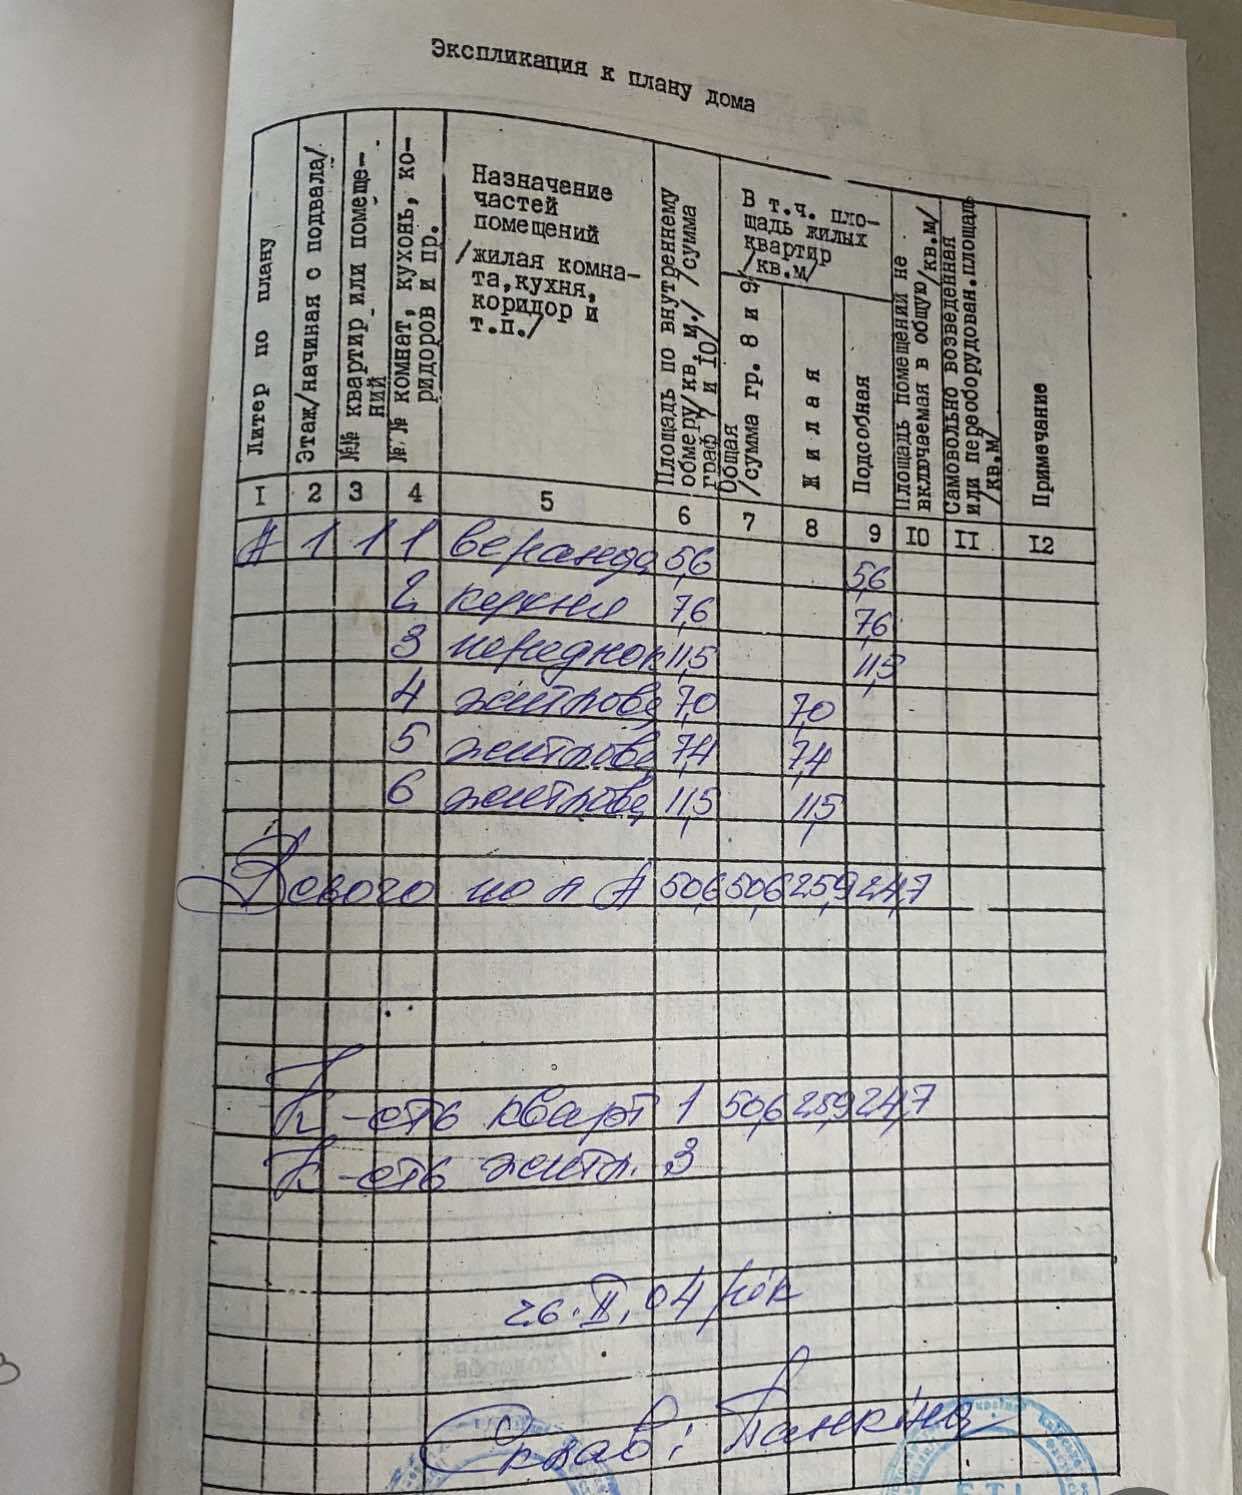 Экспликация к плану дома
Литер по плану
Этаж/начиная с подвала/
№№ квартир или помеще-
ний
№№ комнат, кухонь, ко-
ридоров и пр.
Назначение
частей
помещений
/жилая комна-
та,кухня,
коридор и
т.п./
Площадь по внутреннему
обмеру/кв. м./ /сумма
граф 7 и 10/
В т.ч. пло-
щадь жилых
квартир
/кв.м/
Общая
/сумма гр. 8 и 9/
Жилая
Подсобная
Площадь помещений не
включаемая в общую/кв.м/
Самовольно возведенная
или переоборудован.площадь
/кв.м/
Примечание
I 2 3 4 5 6 7 8 9 IO II I2
А 1 1 1 веранда 5,6 5,6
2 кухня 7,6 7,6
3 передпок 11,5 11,5
4 житлова 7,0 7,0
5 житлова 7,4 7,4
6 житлова 11,5 11,5
Всього по л А 50,6 50,6 25,9 24,7
К-сть кварт 1 50,6 25,9 24,7
К-сть житл. 3
26.II.04 рік
Склав:
БТІ